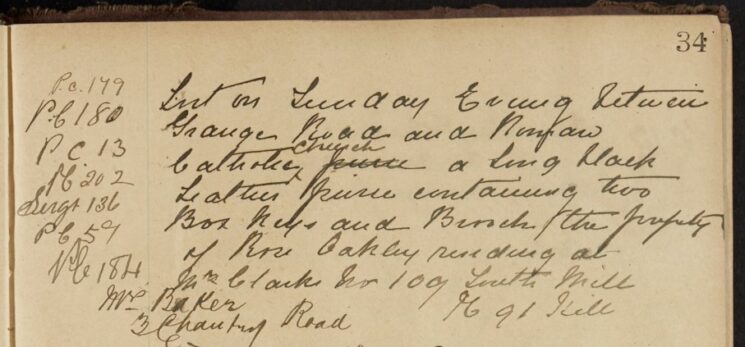 34
P.c. 179
PC 180
P C. 13
PC 202
Sergt 136
PC 59
PC 184
Lost on Sunday Evening between
Grange Road and Roman
Catholic Church purse a Long black
Leather Purse containing two
Box Keys and Brooch the property
of Rose Oakley residing at
Mrs Clarks No 109 South Mill
PC 91 Kill
Mrs Baker
3 Chantry Road